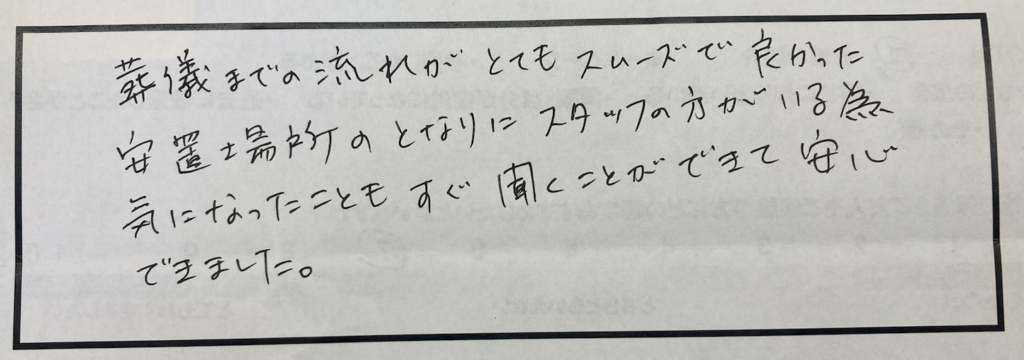 葬儀までの流れがとてもスムーズで良かった
安置場所のとなりにスタッフの方がいる為
気になったこともすぐ聞くことができて安心
できました。